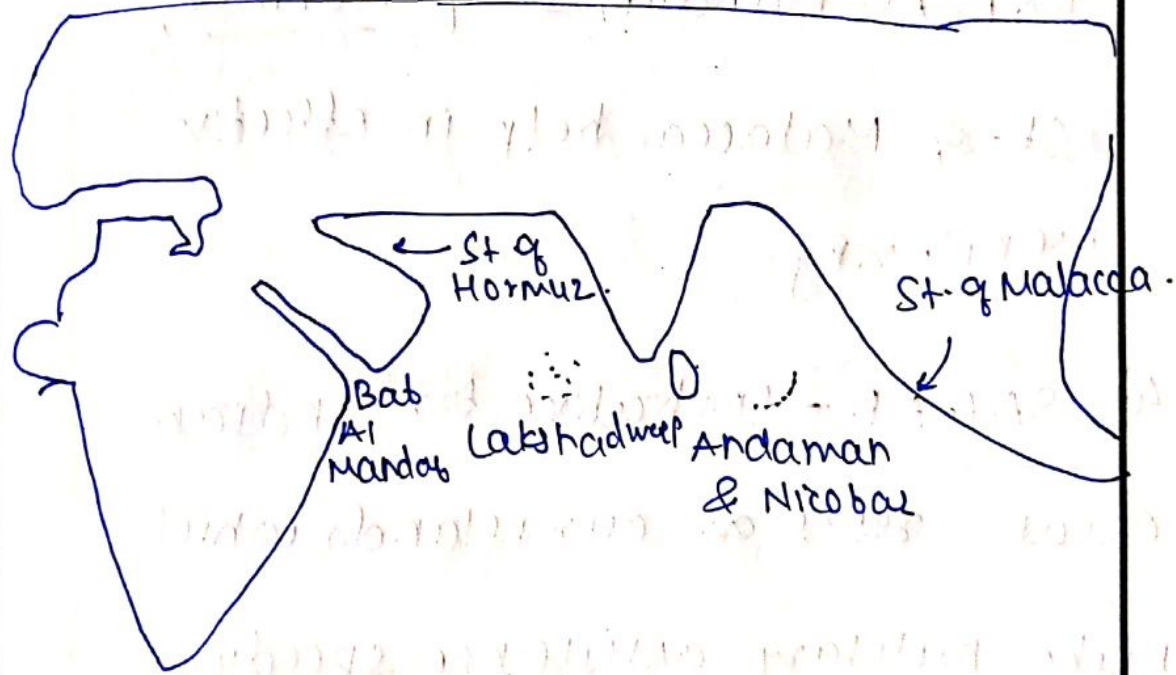 St. of
Hormuz.
St. of Malacca.
Bab
Al
Mandab
Lakshadweep
Andaman
& Nicobar